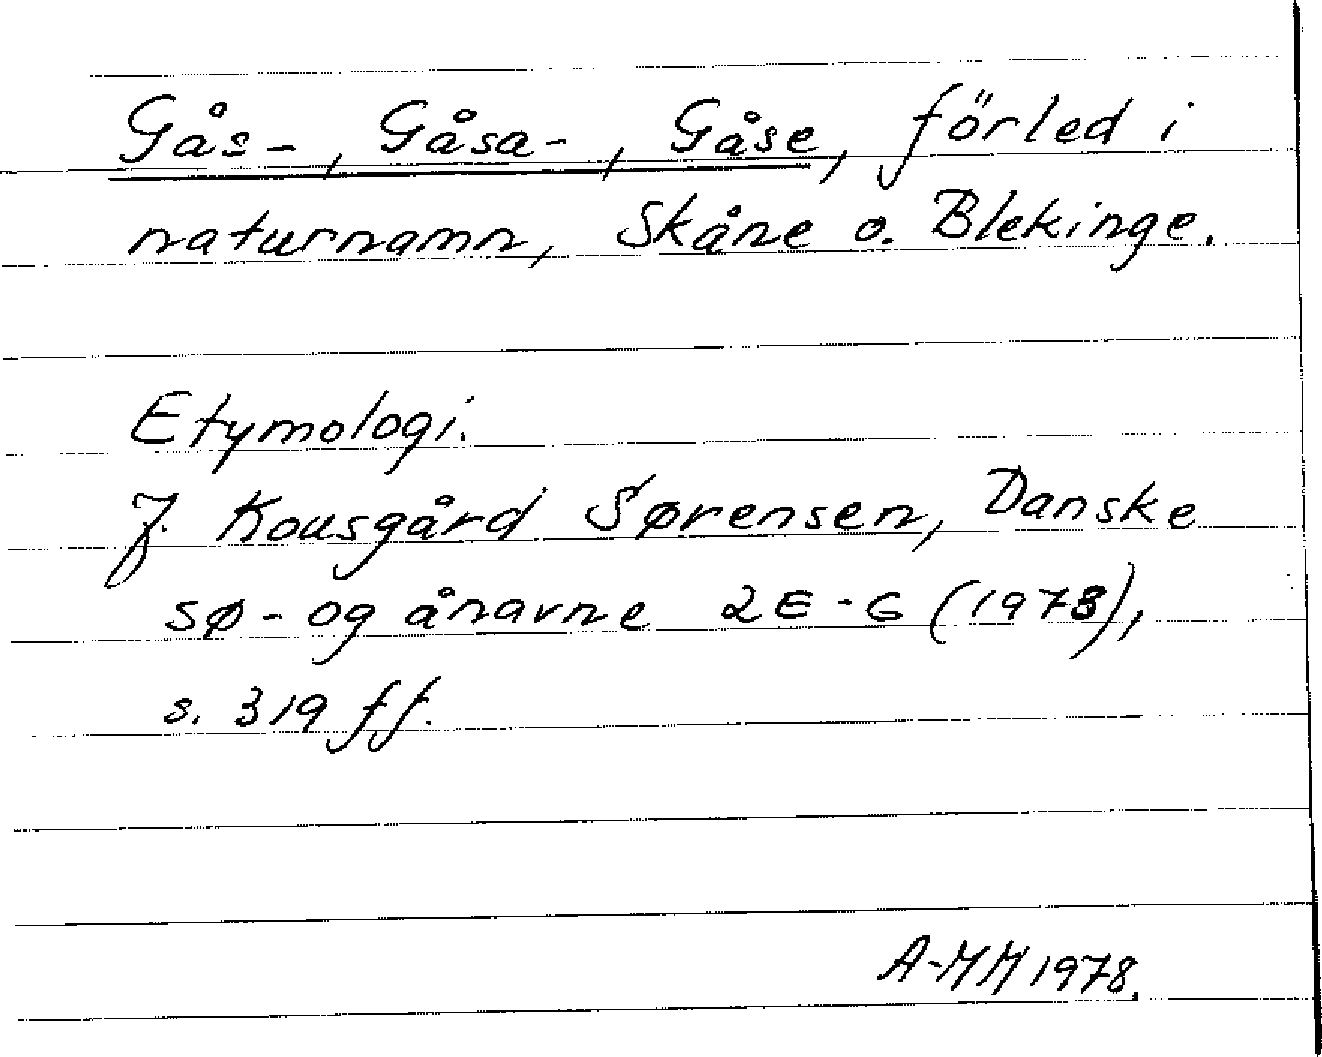 Gås-, Gåsa-, Gåse, förled i
naturnamn, Skåne o. Blekinge.
Etymologi.
J. Kousgård Sørensen, Danske
sø- og ånavne 2 E-G (1973),
s. 319 ff.
A-MM 1978.